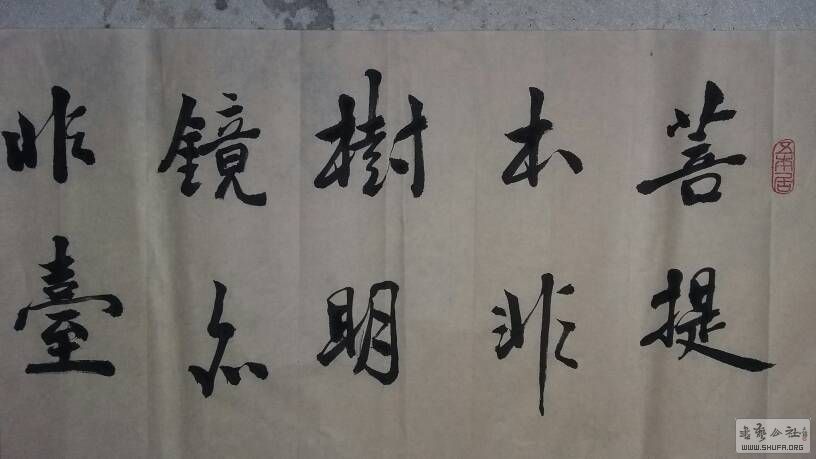 菩提
本非
樹明
鏡亦
非臺
WWW.SHUFA.ORG